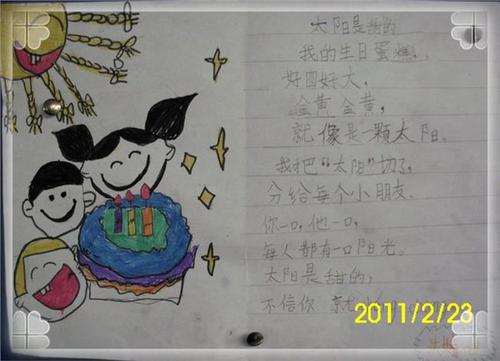 太阳是甜的
我的生日蛋糕，
好圆好大，
金黄金黄，
就像是一颗太阳。
我把“太阳”切了，
分给每个小朋友。
你一口，他一口，
每人都有一口阳光。
太阳是甜的，
不信你 就
2011/2/23